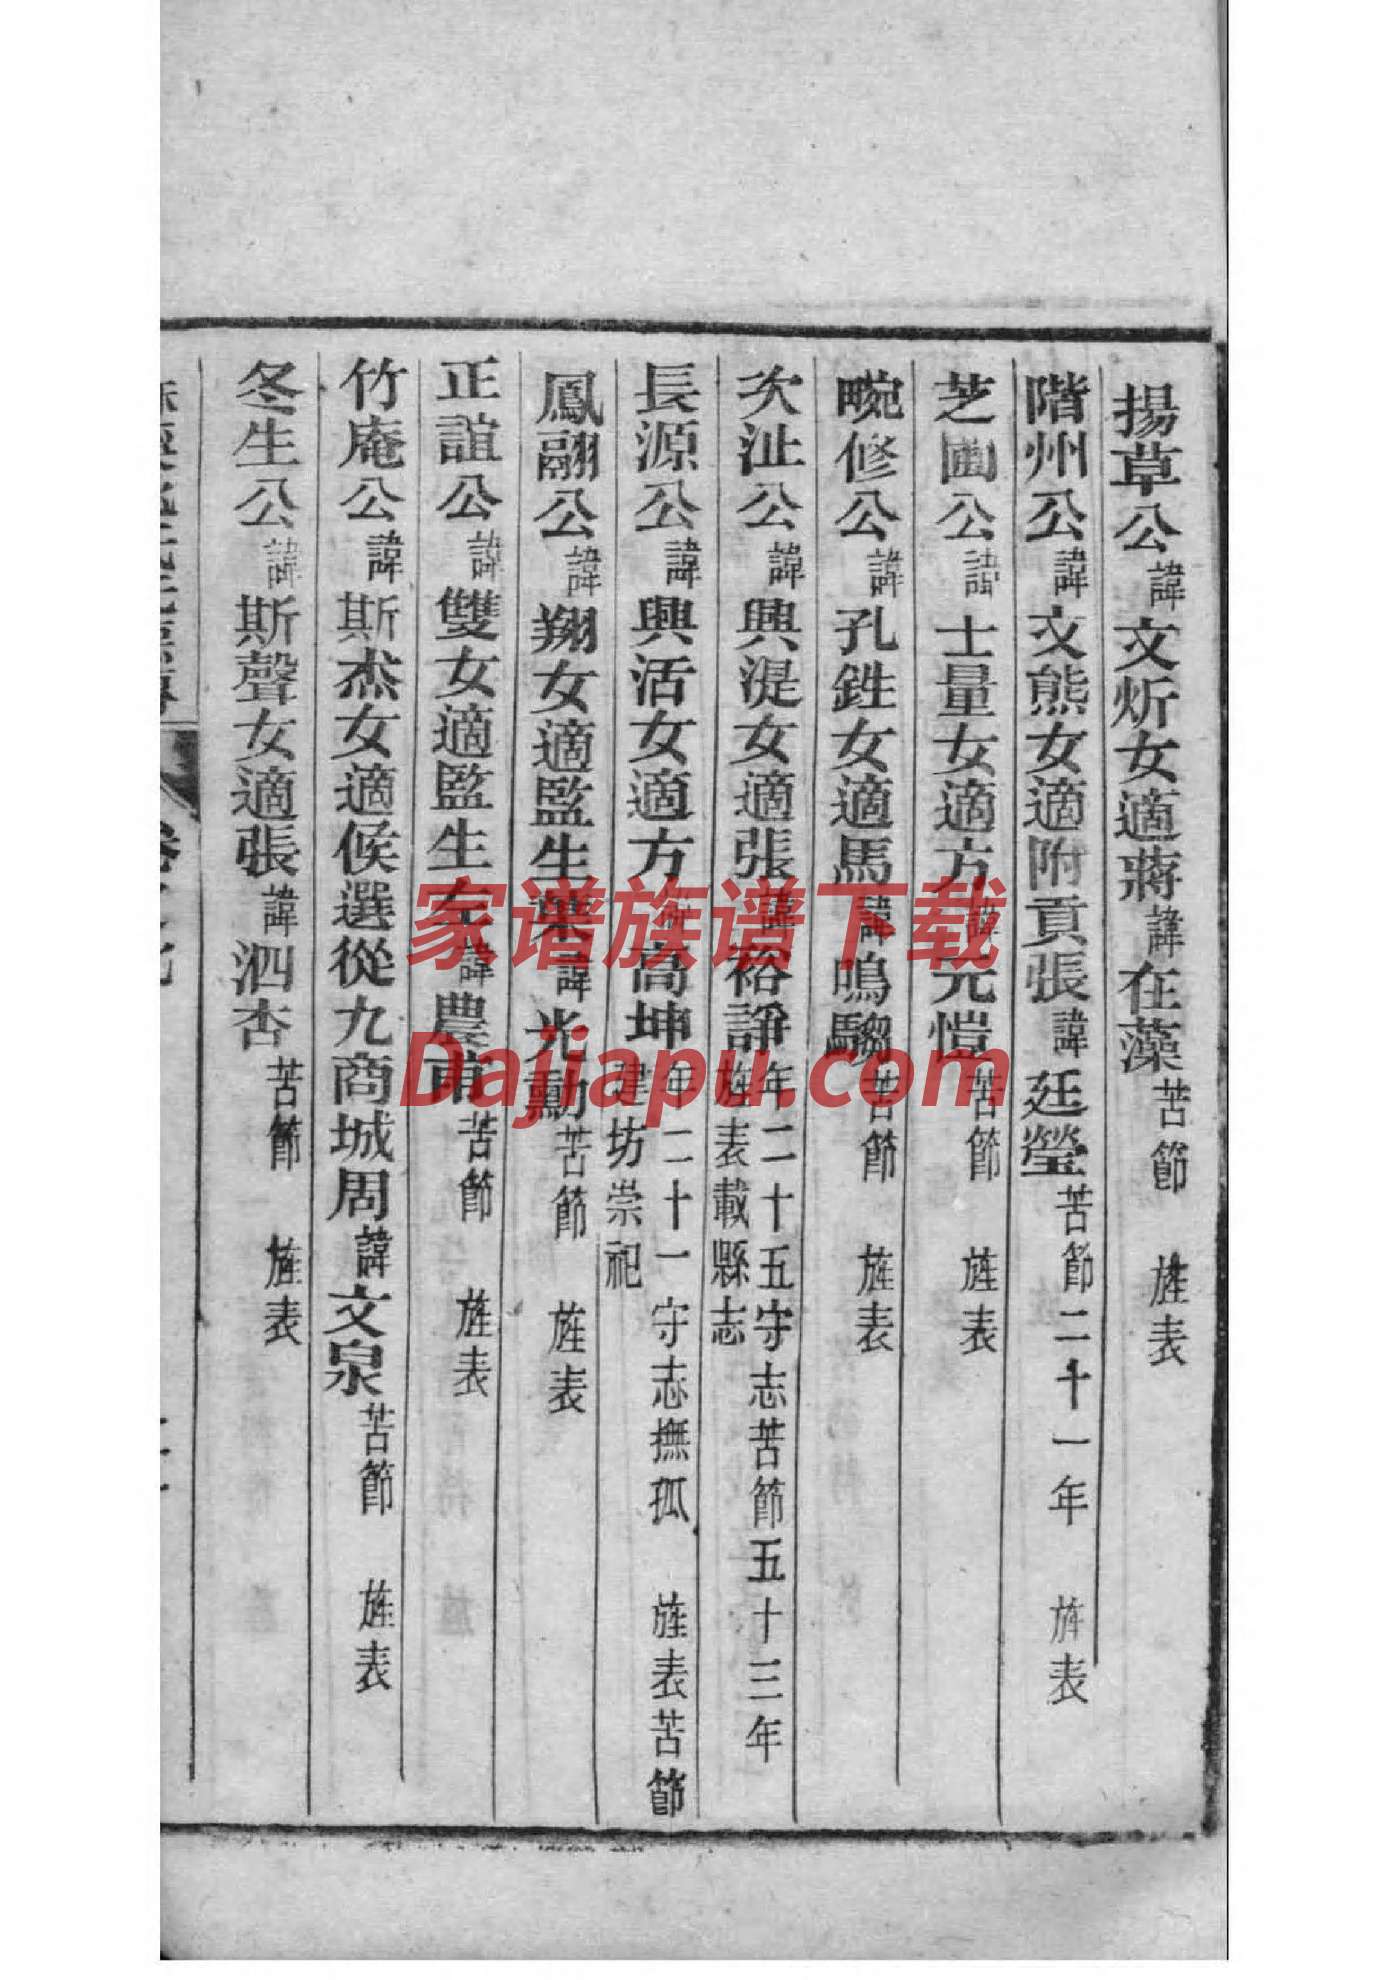 揚草公諱文炘女適蔣諱在藻苦節 旌表
階州公諱文熊女適附貢張諱廷瑩苦節二十一年 旌表
芝圃公諱士量女適方諱元愷苦節 旌表
畹修公諱孔鉎女適馬諱鳴騶苦節 旌表
次沚公諱興湜女適張諱裕諍年二十五守志苦節五十三年
旌表載縣志
長源公諱興活女適方諱高坤年二十一守志撫孤 旌表苦節
建坊崇祀
鳳翮公諱翔女適監生葉諱光勳苦節 旌表
正誼公諱雙女適監生左諱農甫苦節 旌表
竹庵公諱斯杰女適候選從九商城周諱文泉苦節 旌表
冬生公諱斯聲女適張諱泗杏苦節 旌表
家谱族谱下载
Dajiapu.com